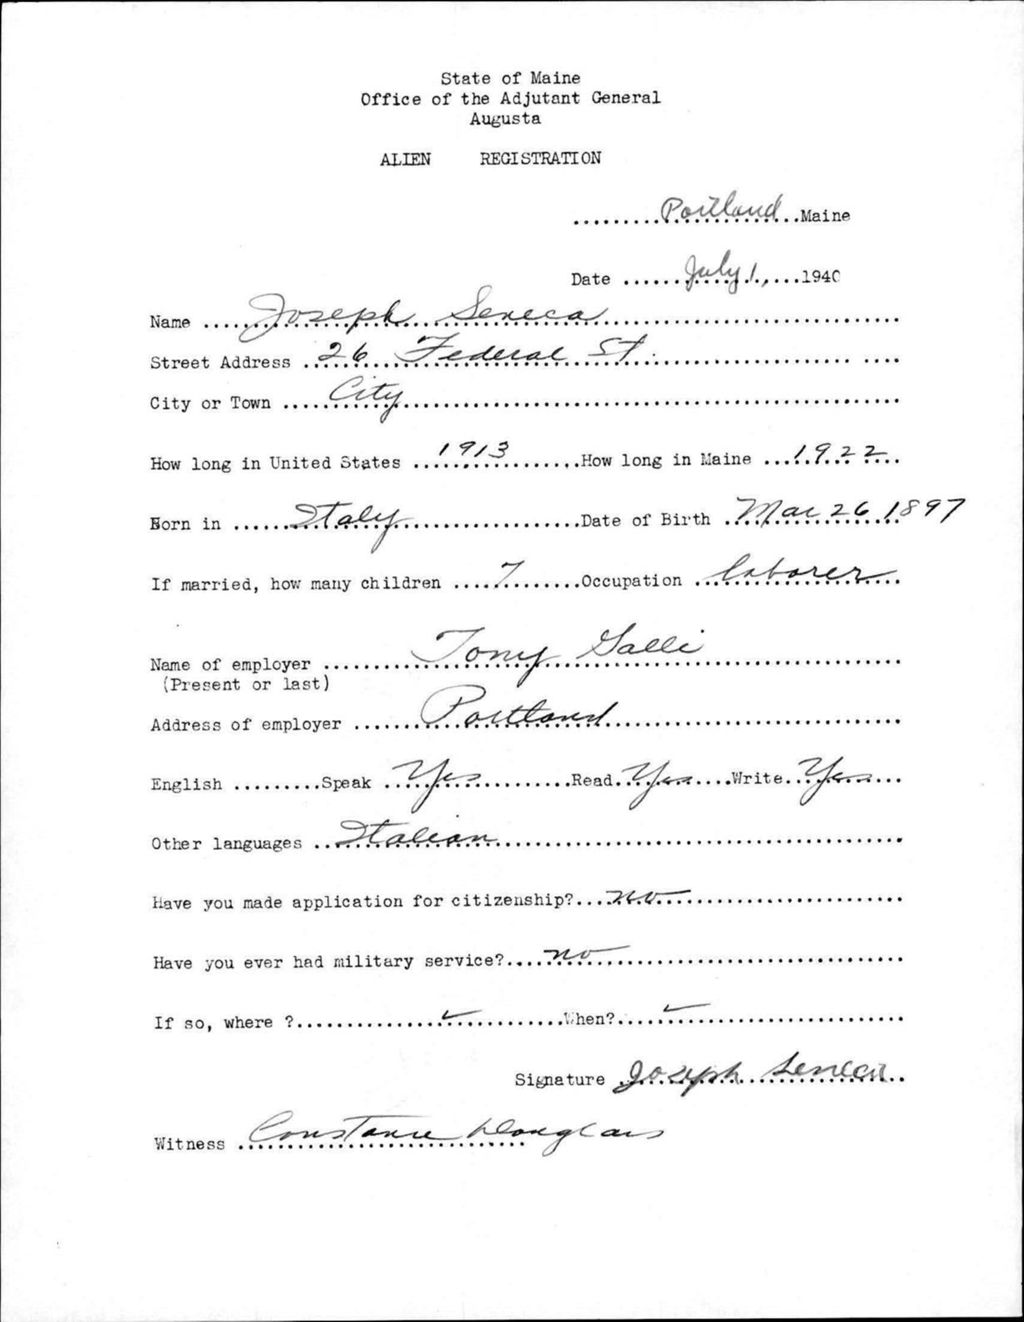 State of Maine
Office of the Adjutant General
Augusta
ALIEN REGISTRATION
.........Portland..Maine
Date ......July 1,....1940
Name ......Joseph Seneca..............................
Street Address ..26 Federal St............................
City or Town ......City..............................
How long in United States ....1913........How long in Maine ...1922....
Born in ......Italy..................Date of Birth ..Mar 26 1897
If married, how many children ....7........Occupation ..laborer..
Name of employer .........Tony Galli....................
(Present or last)
Address of employer .......Portland..............................
English .........Speak ..Yes.........Read..Yes....Write..Yes...
Other languages ..Italian........................................
Have you made application for citizenship?....no........................
Have you ever had military service?....no..............................
If so, where ?...............✓..........When?....✓....................
Signature Joseph Seneca..
Witness Constance Douglass